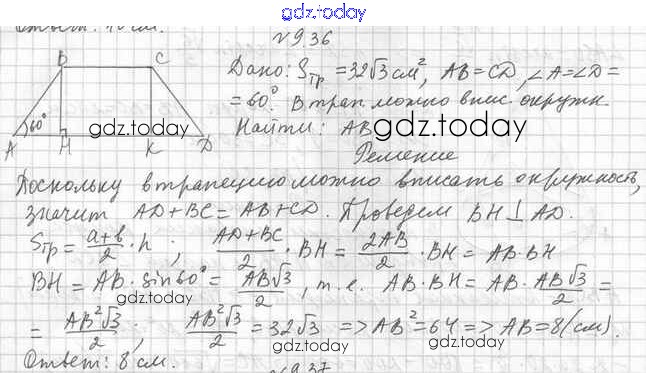 gdz.today
Ответ: 10 см.
№9.36
Дано: Sтр = 32√3 см², AB = CD, ∠A = ∠D =
= 60°. В трап. можно впис. окружн.
Найти: AB
gdz.today
B C
60° gdz.today
A H K D
Решение
Поскольку в трапецию можно вписать окружность,
значит AD + BC = AB + CD. Проведем BH ⊥ AD.
Sтр = (a+b)/2 · h ; (AD+BC)/2 · BH = 2AB/2 · BH = AB · BH
BH = AB · sin 60° = AB√3/2, т.е. AB · BH = AB · AB√3/2 =
gdz.today
= AB²√3/2 ; AB²√3/2 = 32√3 => AB² = 64 => AB = 8 (см).
gdz.today gdz.today
Ответ: 8 см.
№9.37